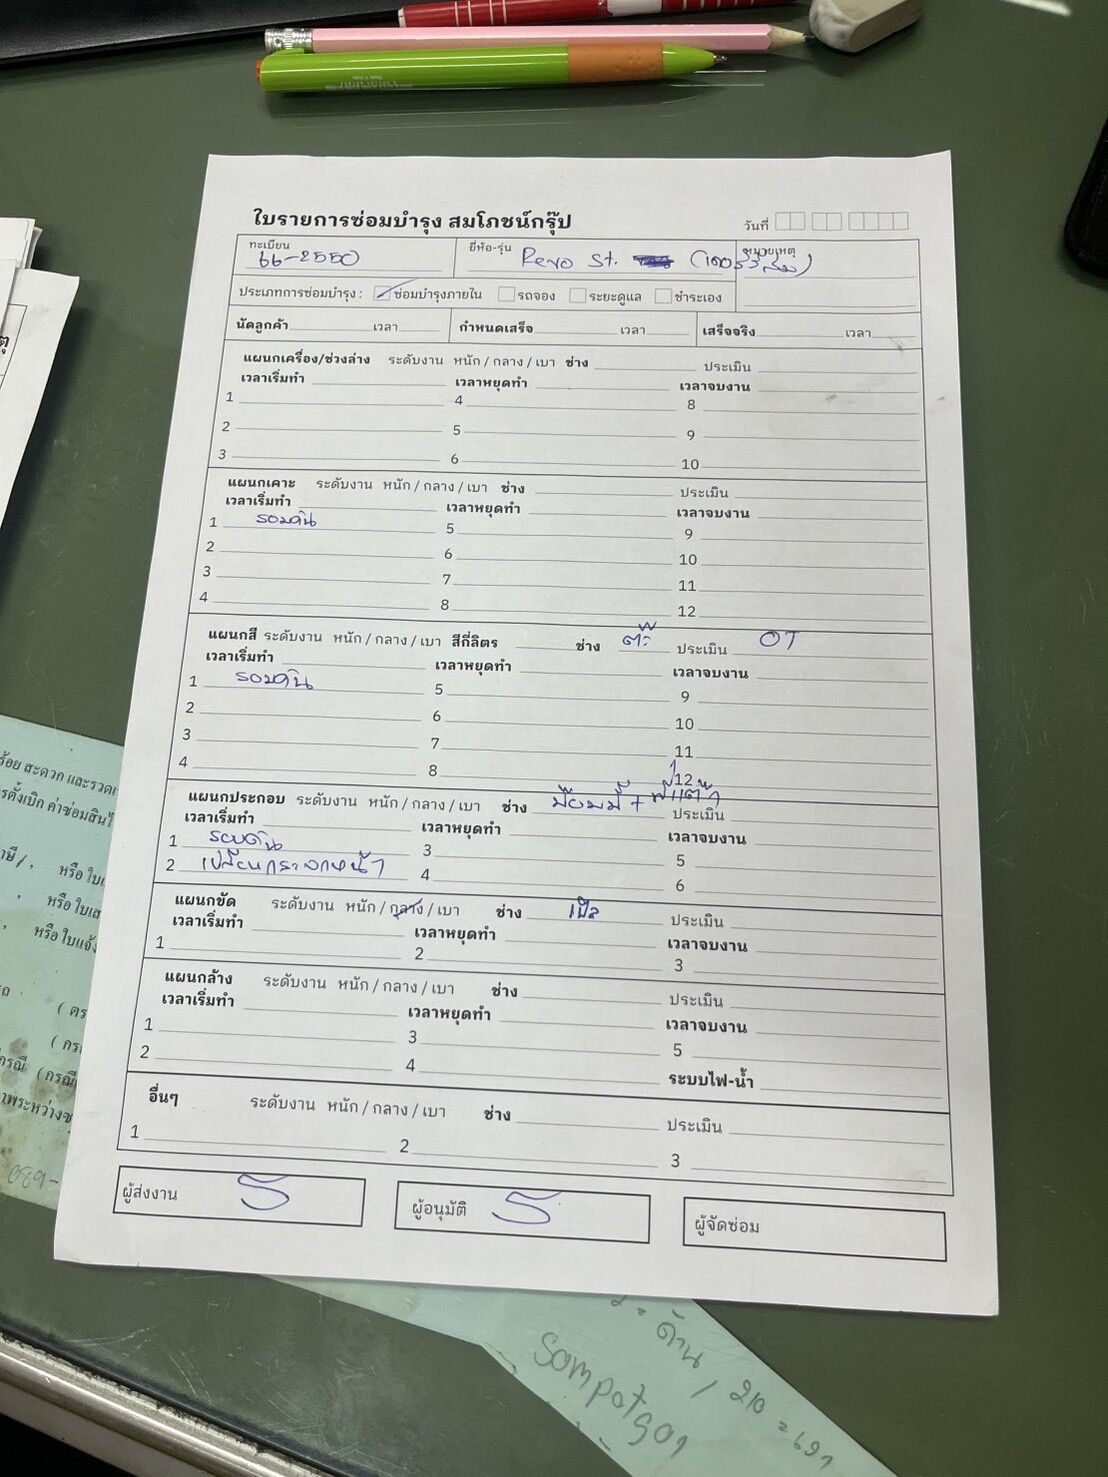 ใบรายการซ่อมบำรุง สมโภชน์กรุ๊ป
วันที่
ทะเบียน 66-2550
ยี่ห้อ-รุ่น Revo St.
หมายเหตุ
ประเภทการซ่อมบำรุง : ซ่อมบำรุงภายใน รถจอง ระยะดูแล ชำระเอง
นัดลูกค้า เวลา กำหนดเสร็จ เวลา เสร็จจริง เวลา
แผนกเครื่อง/ช่วงล่าง ระดับงาน หนัก / กลาง / เบา ช่าง ประเมิน
เวลาเริ่มทำ เวลาหยุดทำ เวลาจบงาน
1 4 8
2 5 9
3 6 10
แผนกเคาะ ระดับงาน หนัก / กลาง / เบา ช่าง ประเมิน
เวลาเริ่มทำ เวลาหยุดทำ เวลาจบงาน
1 รอบคัน 5 9
2 6 10
3 7 11
4 8 12
แผนกสี ระดับงาน หนัก / กลาง / เบา สีกี่ลิตร ช่าง ประเมิน OT
เวลาเริ่มทำ เวลาหยุดทำ เวลาจบงาน
1 รอบคัน 5 9
2 6 10
3 7 11
4 8 12
แผนกประกอบ ระดับงาน หนัก / กลาง / เบา ช่าง ประเมิน
เวลาเริ่มทำ เวลาหยุดทำ เวลาจบงาน
1 รอบคัน 3 5
2 เปลี่ยนกระจกหน้า 4 6
แผนกขัด ระดับงาน หนัก / กลาง / เบา ช่าง ประเมิน
เวลาเริ่มทำ เวลาหยุดทำ เวลาจบงาน
1 2 3
แผนกล้าง ระดับงาน หนัก / กลาง / เบา ช่าง ประเมิน
เวลาเริ่มทำ เวลาหยุดทำ เวลาจบงาน
1 3 5
2 4 ระบบไฟ-น้ำ
อื่นๆ ระดับงาน หนัก / กลาง / เบา ช่าง ประเมิน
1 2 3
ผู้ส่งงาน ผู้อนุมัติ ผู้จัดซ่อม
ร้อย สะดวก และรวดเ
ารตั้งเบิก ค่าซ่อมสินไ
หรือ ใบเ
หรือ ใบเส
หรือ ใบแจ้ง
( ตร
( กร
กรณี (กรณี
าพระหว่างซ
ด้าน / 210